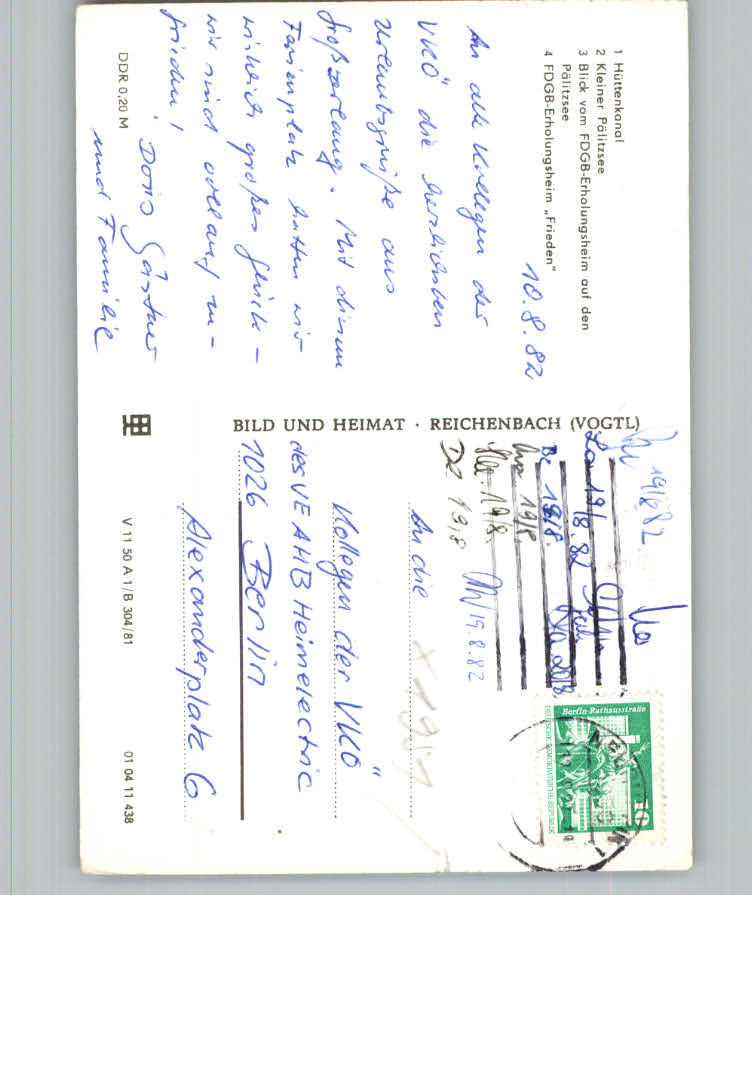 1 Hüttenkanal
2 Kleiner Pälitzsee
3 Blick vom FDGB-Erholungsheim auf den
Pälitzsee
4 FDGB-Erholungsheim „Frieden"
10.8.82
An alle Kollegen der
VKÖ" die herzlichsten
Urlaubsgrüße aus
Großzerlang. Mit diesem
Ferienplatz hatten wir
wirklich großes Glück –
wir sind vollauf zu-
frieden!
Doris Gärtner
und Familie
DDR 0,20 M
BILD UND HEIMAT · REICHENBACH (VOGTL)
19/8 82
La 19/8 82
Be 19/8.
19/8
19/8.
DZ 19,8
19.8.82
Berlin-Rathausstraße
DEUTSCHE DEMOKRATISCHE REPUBLIK
10
An die
Kollegen der VKÖ"
des VE AHB Heimelectric
1026 Berlin
Alexanderplatz 6
V 11 50 A 1/B 304/81
01 04 11 438